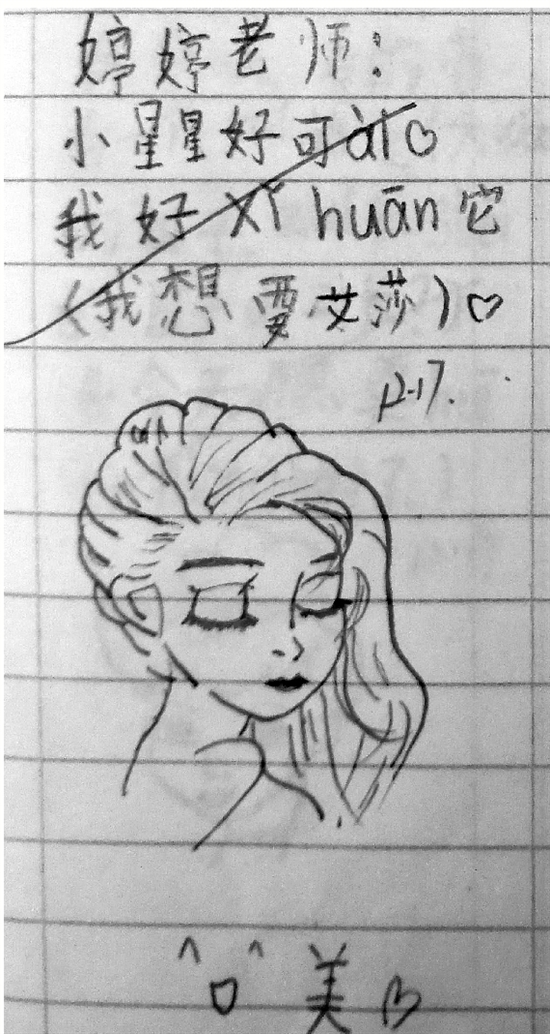 婷婷老师:
小星星好可ài♡
我好xǐhuān它
(我想要艾莎)♡
12.17.
美